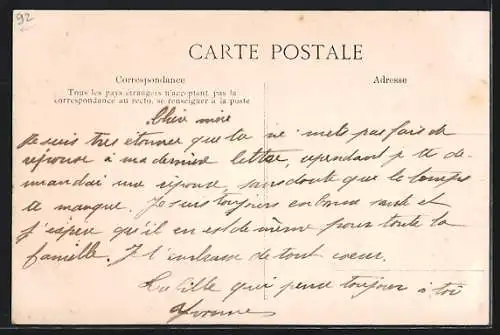 92
CARTE POSTALE
Correspondance
Adresse
Tous les pays étrangers n'acceptant pas la
correspondance au recto, se renseigner à la poste
Chère mère
Je suis tres étonnée que tu ne m'ets pas fais de
réponse à ma dernière lettre, cependant je te de-
mandai une réponse, sans doute que le temps
te manque. Je suis toujours en bonne santé et
j'espère qu'il en est de même pour toute la
famille. Je t'embrasse de tout coeur.
Ta fille qui pense toujours à toi
Yvonne